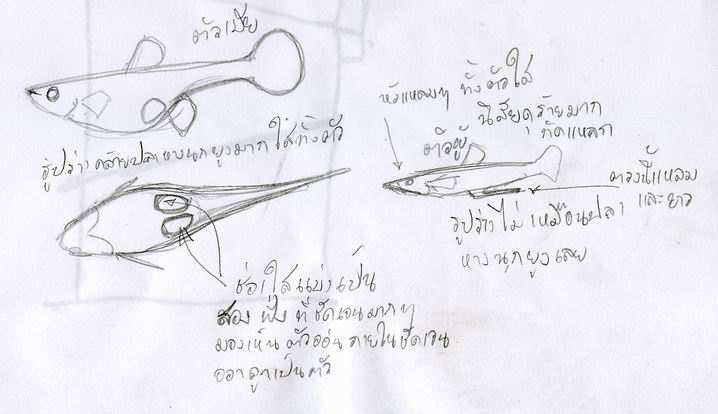 ตัวเมีย
รูปร่างคล้ายปลาหางนกยูงมาก ใสทั้งตัว
หัวแหลมๆ ทั้งตัวใส
นิสัยดุร้ายมาก
กัดแหลก
ตัวผู้
ตรงนี้แหลม
และยาว
รูปร่างไม่เหมือนปลา
หางนกยูงเลย
ช่องใสแบ่งเป็น
สอง ฝั่ง ที่ชัดเจนมากๆ
มองเห็น ตัวอ่อน ภายในชัดเจน
ออกลูกเป็นตัว